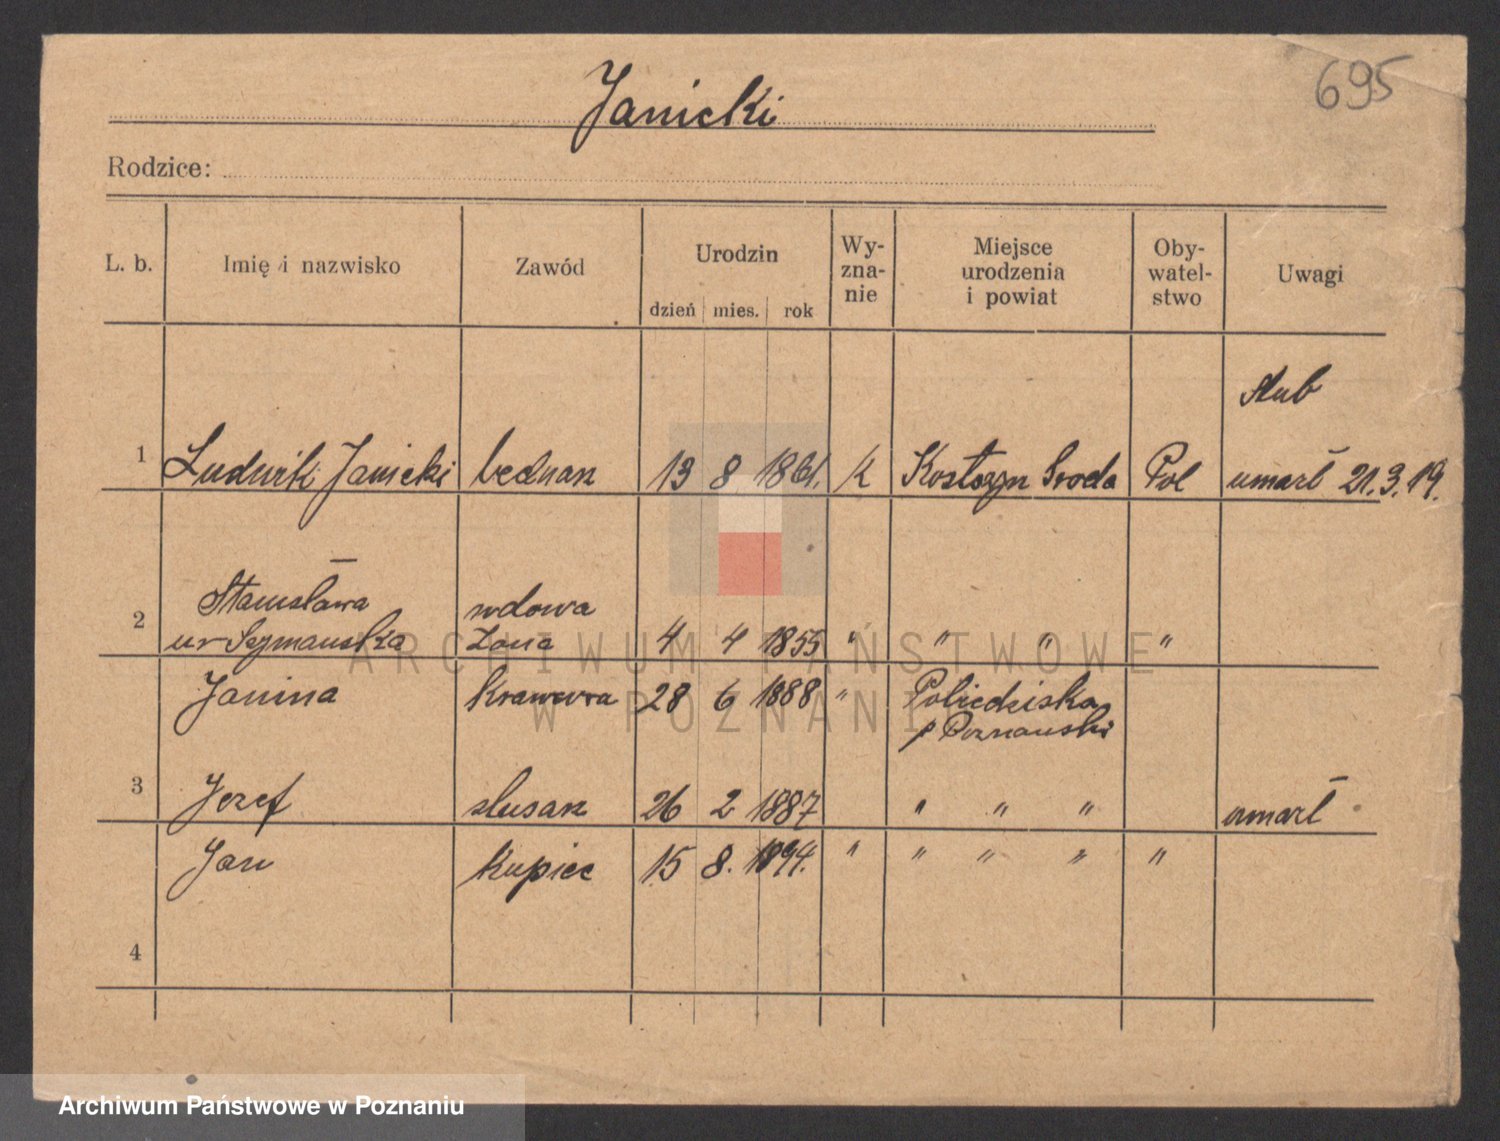 695
Janicki
Rodzice:
L. b. Imię i nazwisko Zawód Urodzin dzień mies. rok Wy-zna-nie Miejsce urodzenia i powiat Oby-watel-stwo Uwagi
ślub
1 Ludwik Janicki bednarz 13 8 1861. k Kostrzyn Sroda Pol umarł 21.3.19.
Stanisława wdowa
2 ur Szymanska żona 4 4 1855 " " " "
Janina Krawcowa 28 6 1888 " Pobiedziska
p Poznanski
3 Jozef slusarz 26 2 1887 " " " umarł
Jan kupiec 15 8. 1894. " " " " "
4
ARCHIWUM PAŃSTWOWE
W POZNANIU
Archiwum Państwowe w Poznaniu